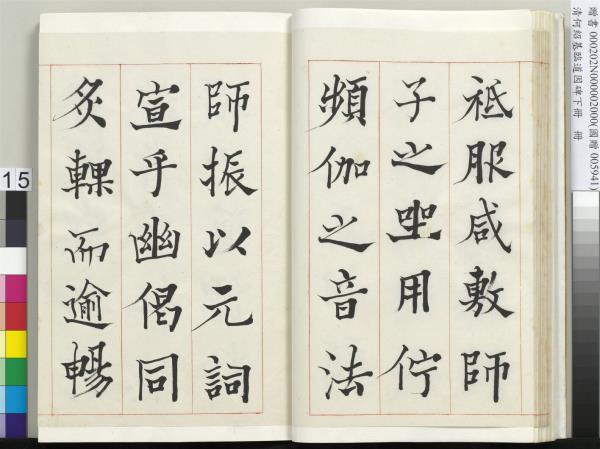 祗服咸敷師
子之𡉄用佇
頻伽之音法
師振以元詞
宣乎幽偈同
炙輠而逾暢
15
贈書 000202N000002000(國贈 005941)
清何紹基臨道因碑下冊 冊